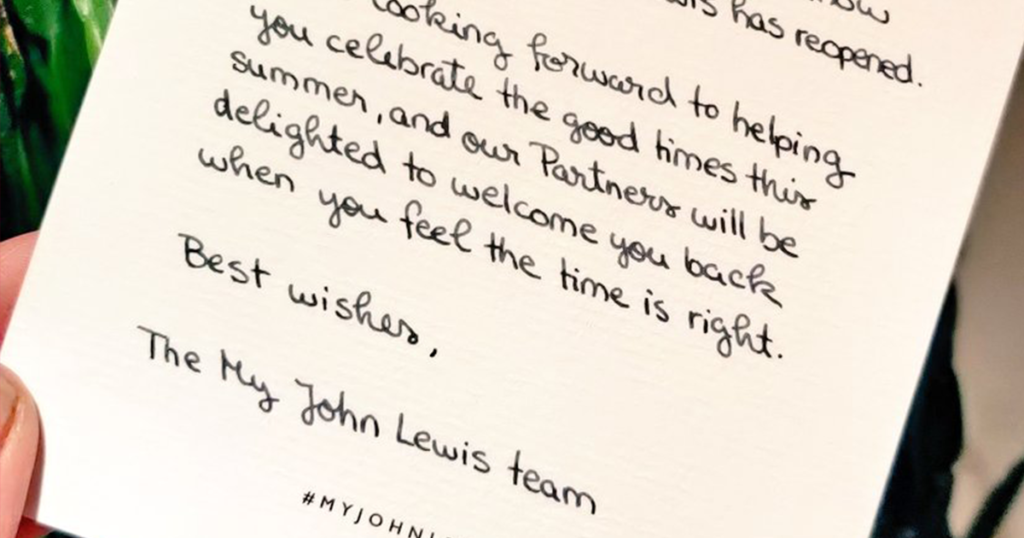 has reopened.
looking forward to helping
you celebrate the good times this
summer, and our Partners will be
delighted to welcome you back
when you feel the time is right.
Best wishes,
The My John Lewis team
#MYJOHN